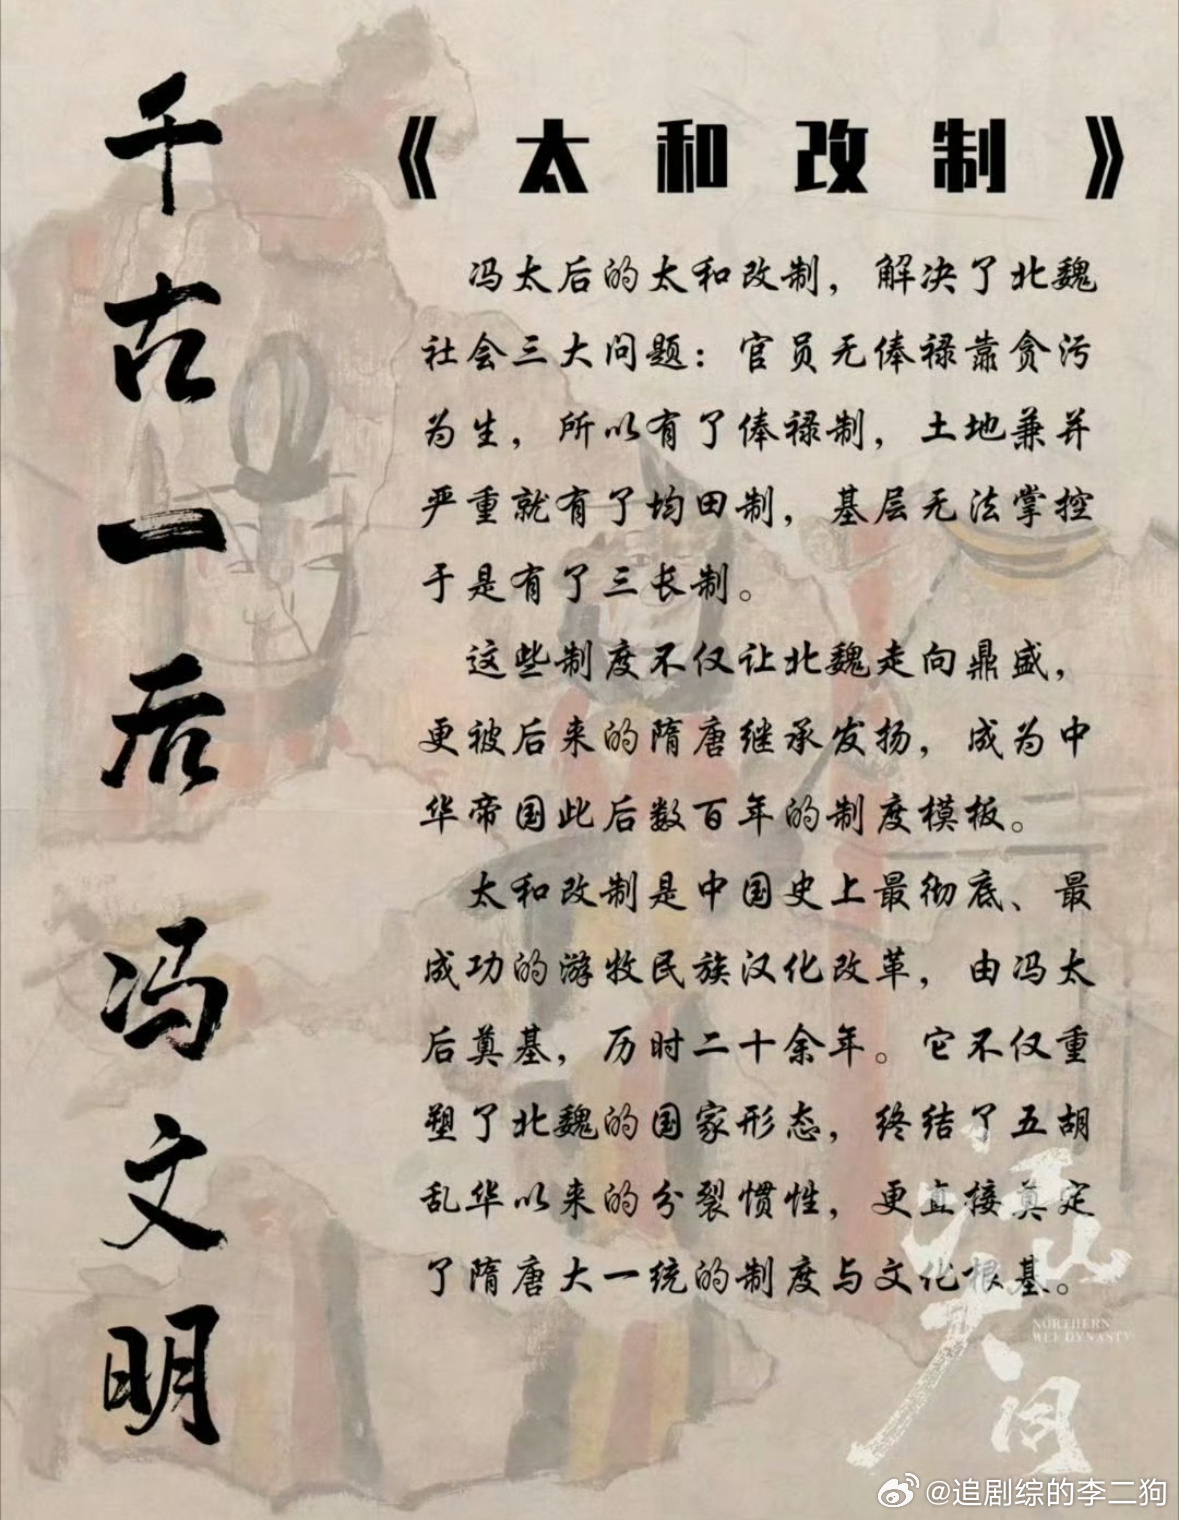 千古一后冯文明
《太和改制》
冯太后的太和改制，解决了北魏
社会三大问题：官员无俸禄靠贪污
为生，所以有了俸禄制，土地兼并
严重就有了均田制，基层无法掌控
于是有了三长制。
这些制度不仅让北魏走向鼎盛，
更被后来的隋唐继承发扬，成为中
华帝国此后数百年的制度模板。
太和改制是中国史上最彻底、最
成功的游牧民族汉化改革，由冯太
后奠基，历时二十余年。它不仅重
塑了北魏的国家形态，终结了五胡
乱华以来的分裂惯性，更直接奠定
了隋唐大一统的制度与文化根基。
NORTHERN
WEI DYNASTY
@追剧综的李二狗